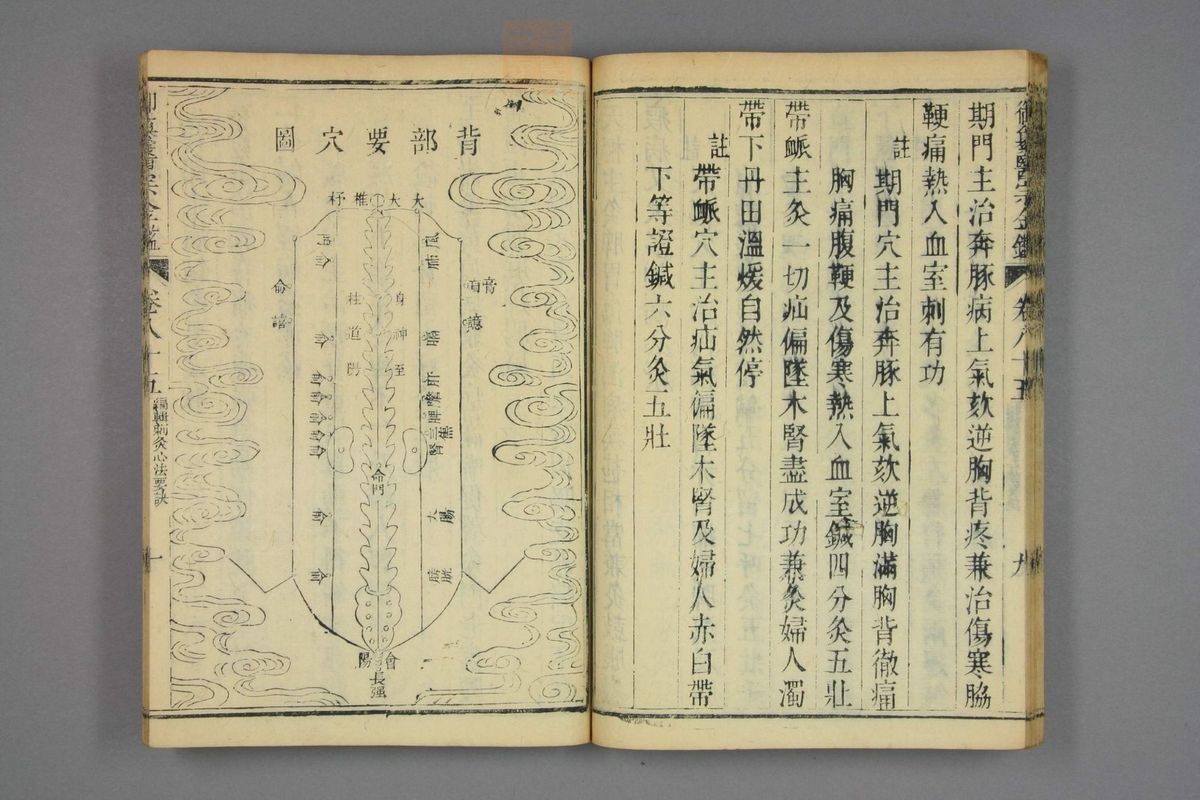 御纂醫宗金鑑
卷八十五
九
期門主治奔豚病上氣欬逆胸背疼兼治傷寒脇
鞕痛熱入血室刺有功
註
期門穴主治奔豚上氣欬逆胸滿胸背徹痛
胸痛腹鞕及傷寒熱入血室鍼四分灸五壯
帶衇主灸一切疝偏墜木腎盡成功兼灸婦人濁
帶下丹田溫煖自然停
註
帶衇穴主治疝氣偏墜木腎及婦人赤白帶
下等證鍼六分灸五壯
背部要穴圖
大大椎杼
風
門
身
神
至
柱
道
陽
膏
肓
譩
俞
譆
膈
肝
膽
脾
三焦
腎
大腸
膀胱
命門
會陽
長强
御纂醫宗金鑑
卷八十五
編輯刺灸心法要訣
十